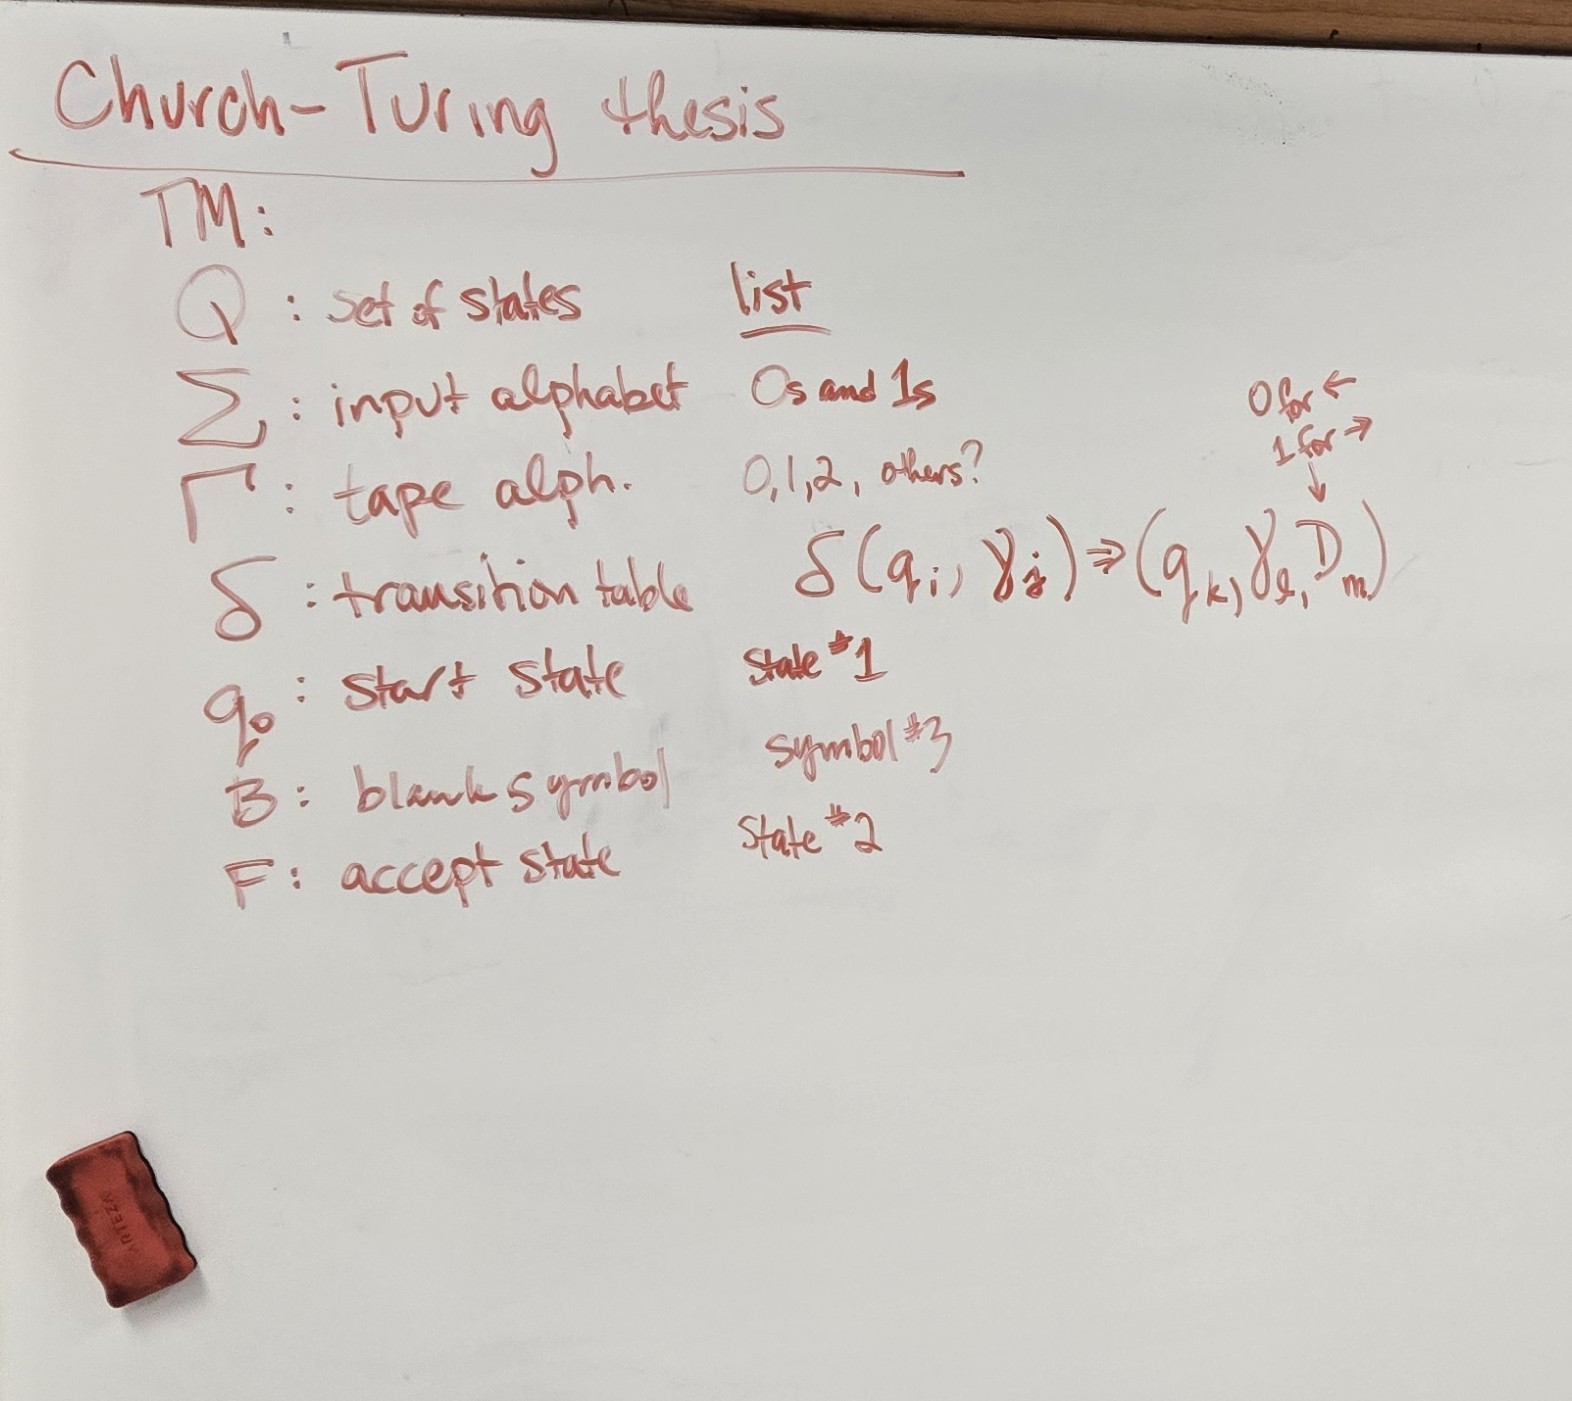 Church-Turing thesis
TM:
Q : set of states list
Σ : input alphabet 0s and 1s
0 for ←
1 for →
↓
Γ : tape alph. 0,1,2, others?
δ : transition table δ(qᵢ, γⱼ) ⇒ (qₖ, γₗ, Dₘ)
q₀ : start state State #1
B : blank symbol symbol #3
F : accept state State #2
ARTEZA